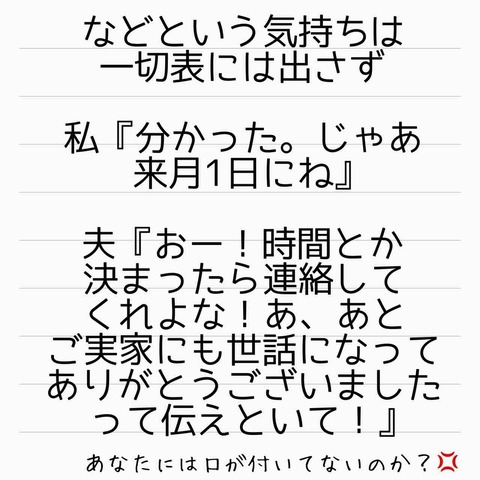 などという気持ちは
一切表には出さず
私『分かった。じゃあ
来月1日にね』
夫『おー！時間とか
決まったら連絡して
くれよな！あ、あと
ご実家にも世話になって
ありがとうございました
って伝えといて！』
あなたには口が付いてないのか？💢